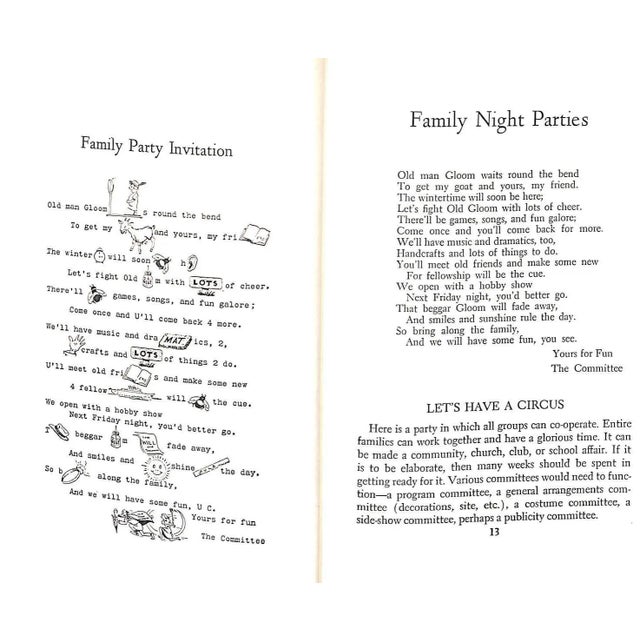 Family Party Invitation
Old man Gloom s round the bend
To get my and yours, my fri
The winter will soon h
Let's fight Old m with LOTS of cheer.
There'll games, songs, and fun galore;
Come once and U'll come back 4 more.
We'll have music and dra MAT ics, 2,
crafts and LOTS of things 2 do.
U'll meet old fri s and make some new
4 fellow will the cue.
We open with a hobby show
Next Friday night, you'd better go.
T beggar m WILL fade away,
And smiles and shine the day.
So b along the family,
And we will have some fun, U C.
Yours for fun
The Committee
Family Night Parties
Old man Gloom waits round the bend
To get my goat and yours, my friend.
The wintertime will soon be here;
Let's fight Old Gloom with lots of cheer.
There'll be games, songs, and fun galore;
Come once and you'll come back for more.
We'll have music and dramatics, too,
Handcrafts and lots of things to do.
You'll meet old friends and make some new
For fellowship will be the cue.
We open with a hobby show
Next Friday night, you'd better go.
That beggar Gloom will fade away,
And smiles and sunshine rule the day.
So bring along the family,
And we will have some fun, you see.
Yours for Fun
The Committee
LET'S HAVE A CIRCUS
Here is a party in which all groups can co-operate. Entire
families can work together and have a glorious time. It can
be made a community, church, club, or school affair. If it
is to be elaborate, then many weeks should be spent in
getting ready for it. Various committees would need to func-
tion—a program committee, a general arrangements com-
mittee (decorations, site, etc.), a costume committee, a
side-show committee, perhaps a publicity committee.
13